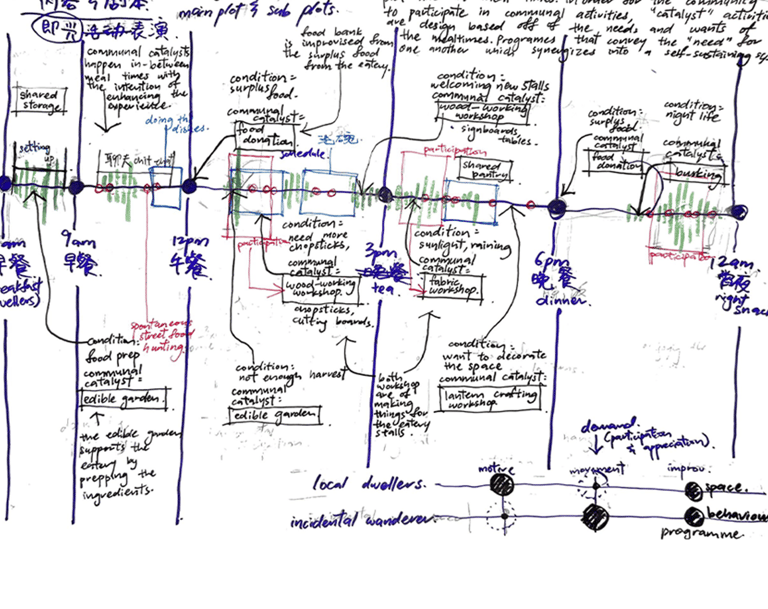 即兴 活动表演
main plot & sub plots.
to participate in communal activities, "catalyst" activiti
are design based off of the needs and wants of
the mealtimes. Programes that convey the "need" for
one another which synergizes into a self-sustaining sy
communal catalysts
happen in-between
meal times with
the intention of
enhancing the
experience.
shared
storage
setting
up
doing the
dishes.
聊天 chit chat
food bank
is improvised from
the surplus food
from the eatery.
condition:
surplus
food.
communal
catalyst=
food
donation
schedule
condition:
welcoming new stalls
communal catalyst:
wood-working
workshop
signboards
tables.
participation
shared
pantry
condition:
surplus
food.
communal
catalyst
food
donation
condition:
night life
communal
catalyst:
busking
am
早餐
(breakfast
dwellers)
9am
早餐
12pm
午餐
3pm
tea
6pm
晚餐
dinner.
12am
宵夜
night snac
spontaneous
street food
hunting.
condition:
food prep
communal
catalyst:
edible garden.
the edible garden
supports the
eatery by
prepping the
ingredients.
condition:
need more
chopsticks,
communal
catalyst=
wood-working
workshop.
chopsticks,
cutting boards.
condition:
not enough harvest
communal
catalyst:
edible garden
condition:
sunlight, mining
communal
catalyst:
fabric
workshop.
both
workshop
are of
making
things for
the eatery
stalls.
condition:
want to decorate
the space
communal catalyst:
lantern crafting
workshop
participation
demand.
(participation
& appreciation).
motive
movement
improv.
local dwellers.
space.
incidental wanderer
behaviour
programme.